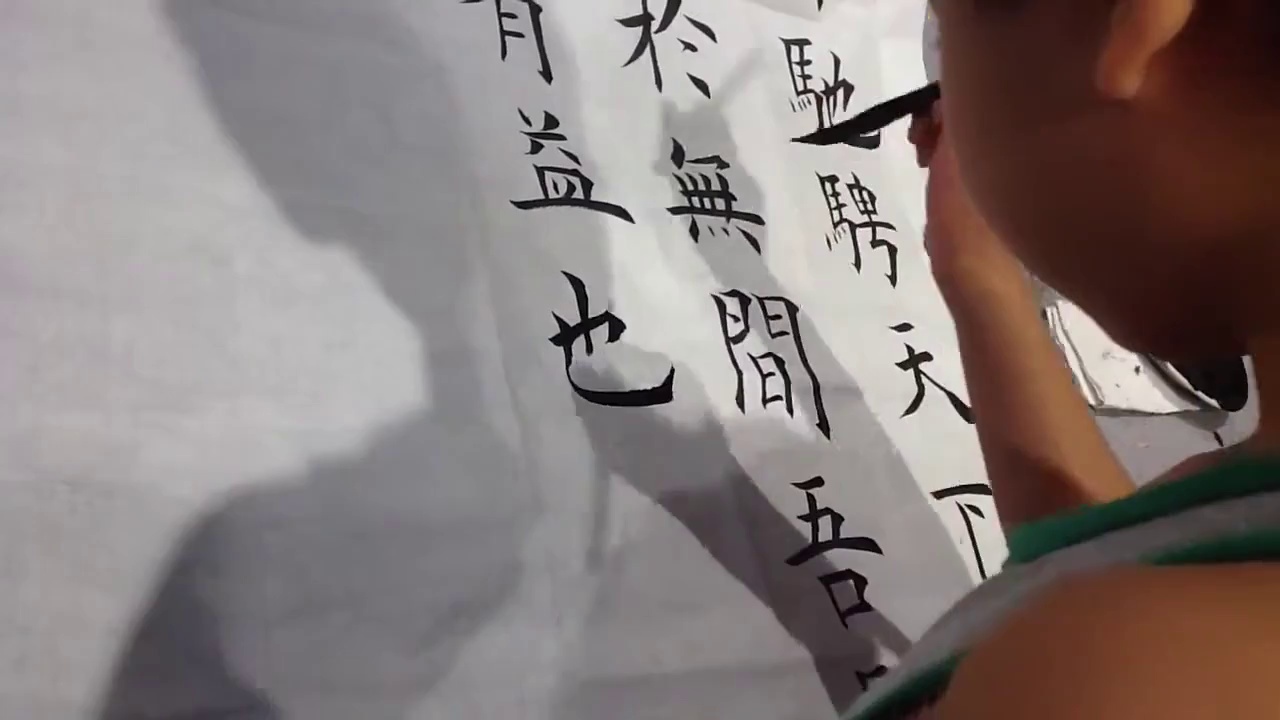 馳騁天下
於無間吾
有益也